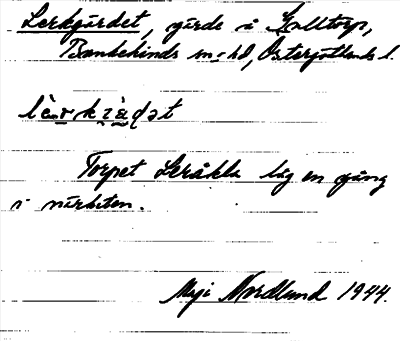 Lerkgärdet, gärde i Kulltorp,
Bankekinds sn o hd, Östergötlands l.
Torpet Leråkla låg en gång
i närheten.
Maji Nordlund 1944.